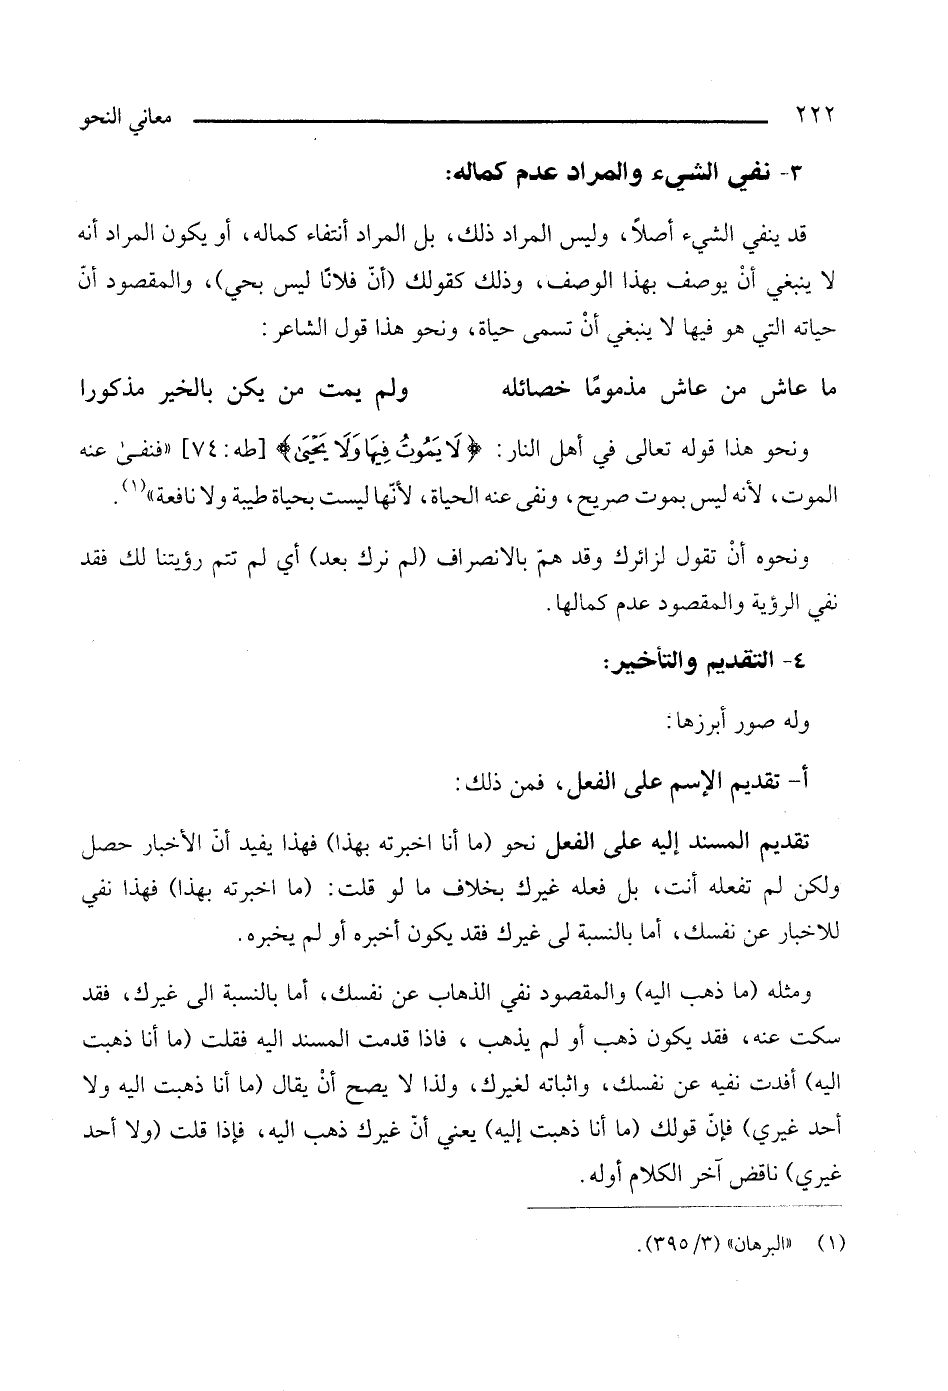 ٢٢٢ معاني النحو
٣- نفي الشيء والمراد عدم كماله:
قد ينفي الشيء أصلاً، وليس المراد ذلك، بل المراد أنتفاء كماله، أو يكون المراد أنه
لا ينبغي أنْ يوصف بهذا الوصف، وذلك كقولك (أنّ فلانًا ليس بحي)، والمقصود أنّ
حياته التي هو فيها لا ينبغي أنْ تسمى حياة، ونحو هذا قول الشاعر:
ما عاش من عاش مذمومًا خصائله ولم يمت من يكن بالخير مذكورا
ونحو هذا قوله تعالى في أهل النار: ﴿لَا يَمُوتُ فِيهَا وَلَا يَحْيَىٰ﴾ [طه: ٧٤] «فنفىٰ عنه
الموت، لأنه ليس بموت صريح، ونفى عنه الحياة، لأنّها ليست بحياة طيبة ولا نافعة»(١).
ونحوه أنْ تقول لزائرك وقد همّ بالانصراف (لم نرك بعد) أي لم تتم رؤيتنا لك فقد
نفي الرؤية والمقصود عدم كمالها.
٤- التقديم والتأخير:
وله صور أبرزها:
أ- تقديم الإسم على الفعل، فمن ذلك:
تقديم المسند إليه على الفعل نحو (ما أنا اخبرته بهذا) فهذا يفيد أنّ الأخبار حصل
ولكن لم تفعله أنت، بل فعله غيرك بخلاف ما لو قلت: (ما اخبرته بهذا) فهذا نفي
للاخبار عن نفسك، أما بالنسبة لى غيرك فقد يكون أخبره أو لم يخبره.
ومثله (ما ذهب اليه) والمقصود نفي الذهاب عن نفسك، أما بالنسبة الى غيرك، فقد
سكت عنه، فقد يكون ذهب أو لم يذهب ، فاذا قدمت المسند اليه فقلت (ما أنا ذهبت
اليه) أفدت نفيه عن نفسك، واثباته لغيرك، ولذا لا يصح أنْ يقال (ما أنا ذهبت اليه ولا
أحد غيري) فإنّ قولك (ما أنا ذهبت إليه) يعني أنّ غيرك ذهب اليه، فإذا قلت (ولا أحد
غيري) ناقض آخر الكلام أوله.
(١) «البرهان» (٣/ ٣٩٥).